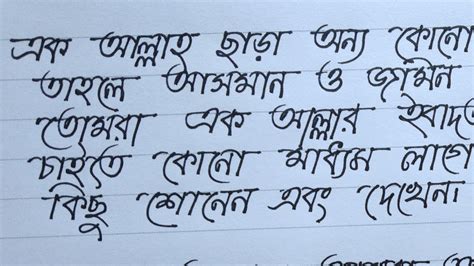 এক আল্লাহ ছাড়া অন্য কোনো
তাহলে আসমান ও জমিন
তোমরা এক আল্লার ইবাদত
চাইতে কোনো মাধ্যম লাগে
কিছু শোনেন এবং দেখেন।